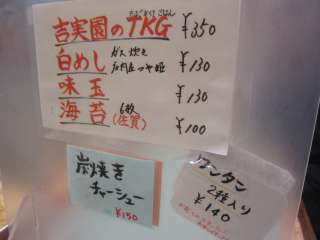 たまごかけごはん
吉実園のTKG ¥350
白めし ガス炊き
庄内産つや姫 ¥130
味玉 ¥130
海苔 6枚
(佐賀) ¥100
炭焼き
チャーシュー
¥150
ワンタン
2種入り
¥140